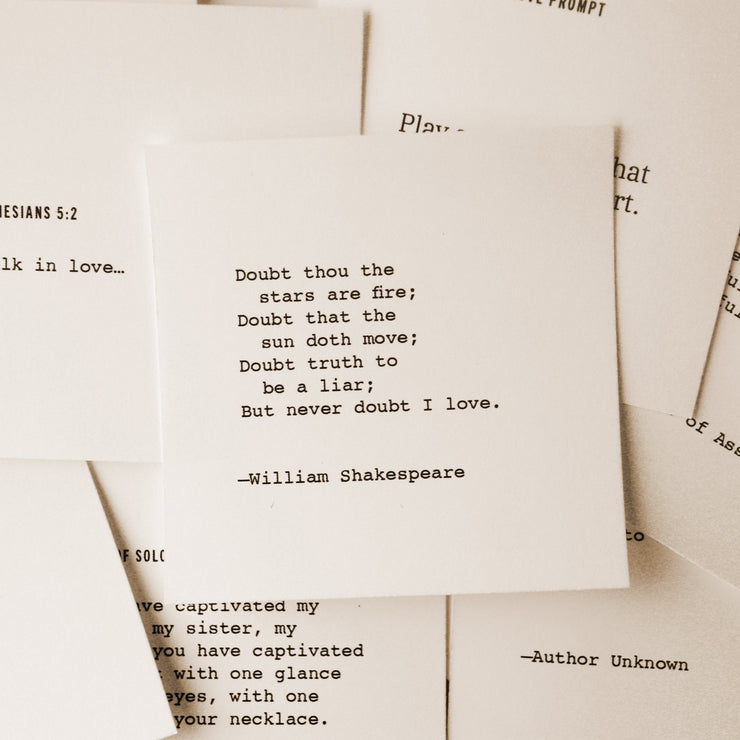 PROMPT
Play
hat
rt.
5:2
in love…
Doubt thou the
stars are fire;
Doubt that the
sun doth move;
Doubt truth to
be a liar;
But never doubt I love.
—William Shakespeare
of
to
captivated my
my sister, my
you have captivated
with one glance
eyes, with one
your necklace.
—Author Unknown